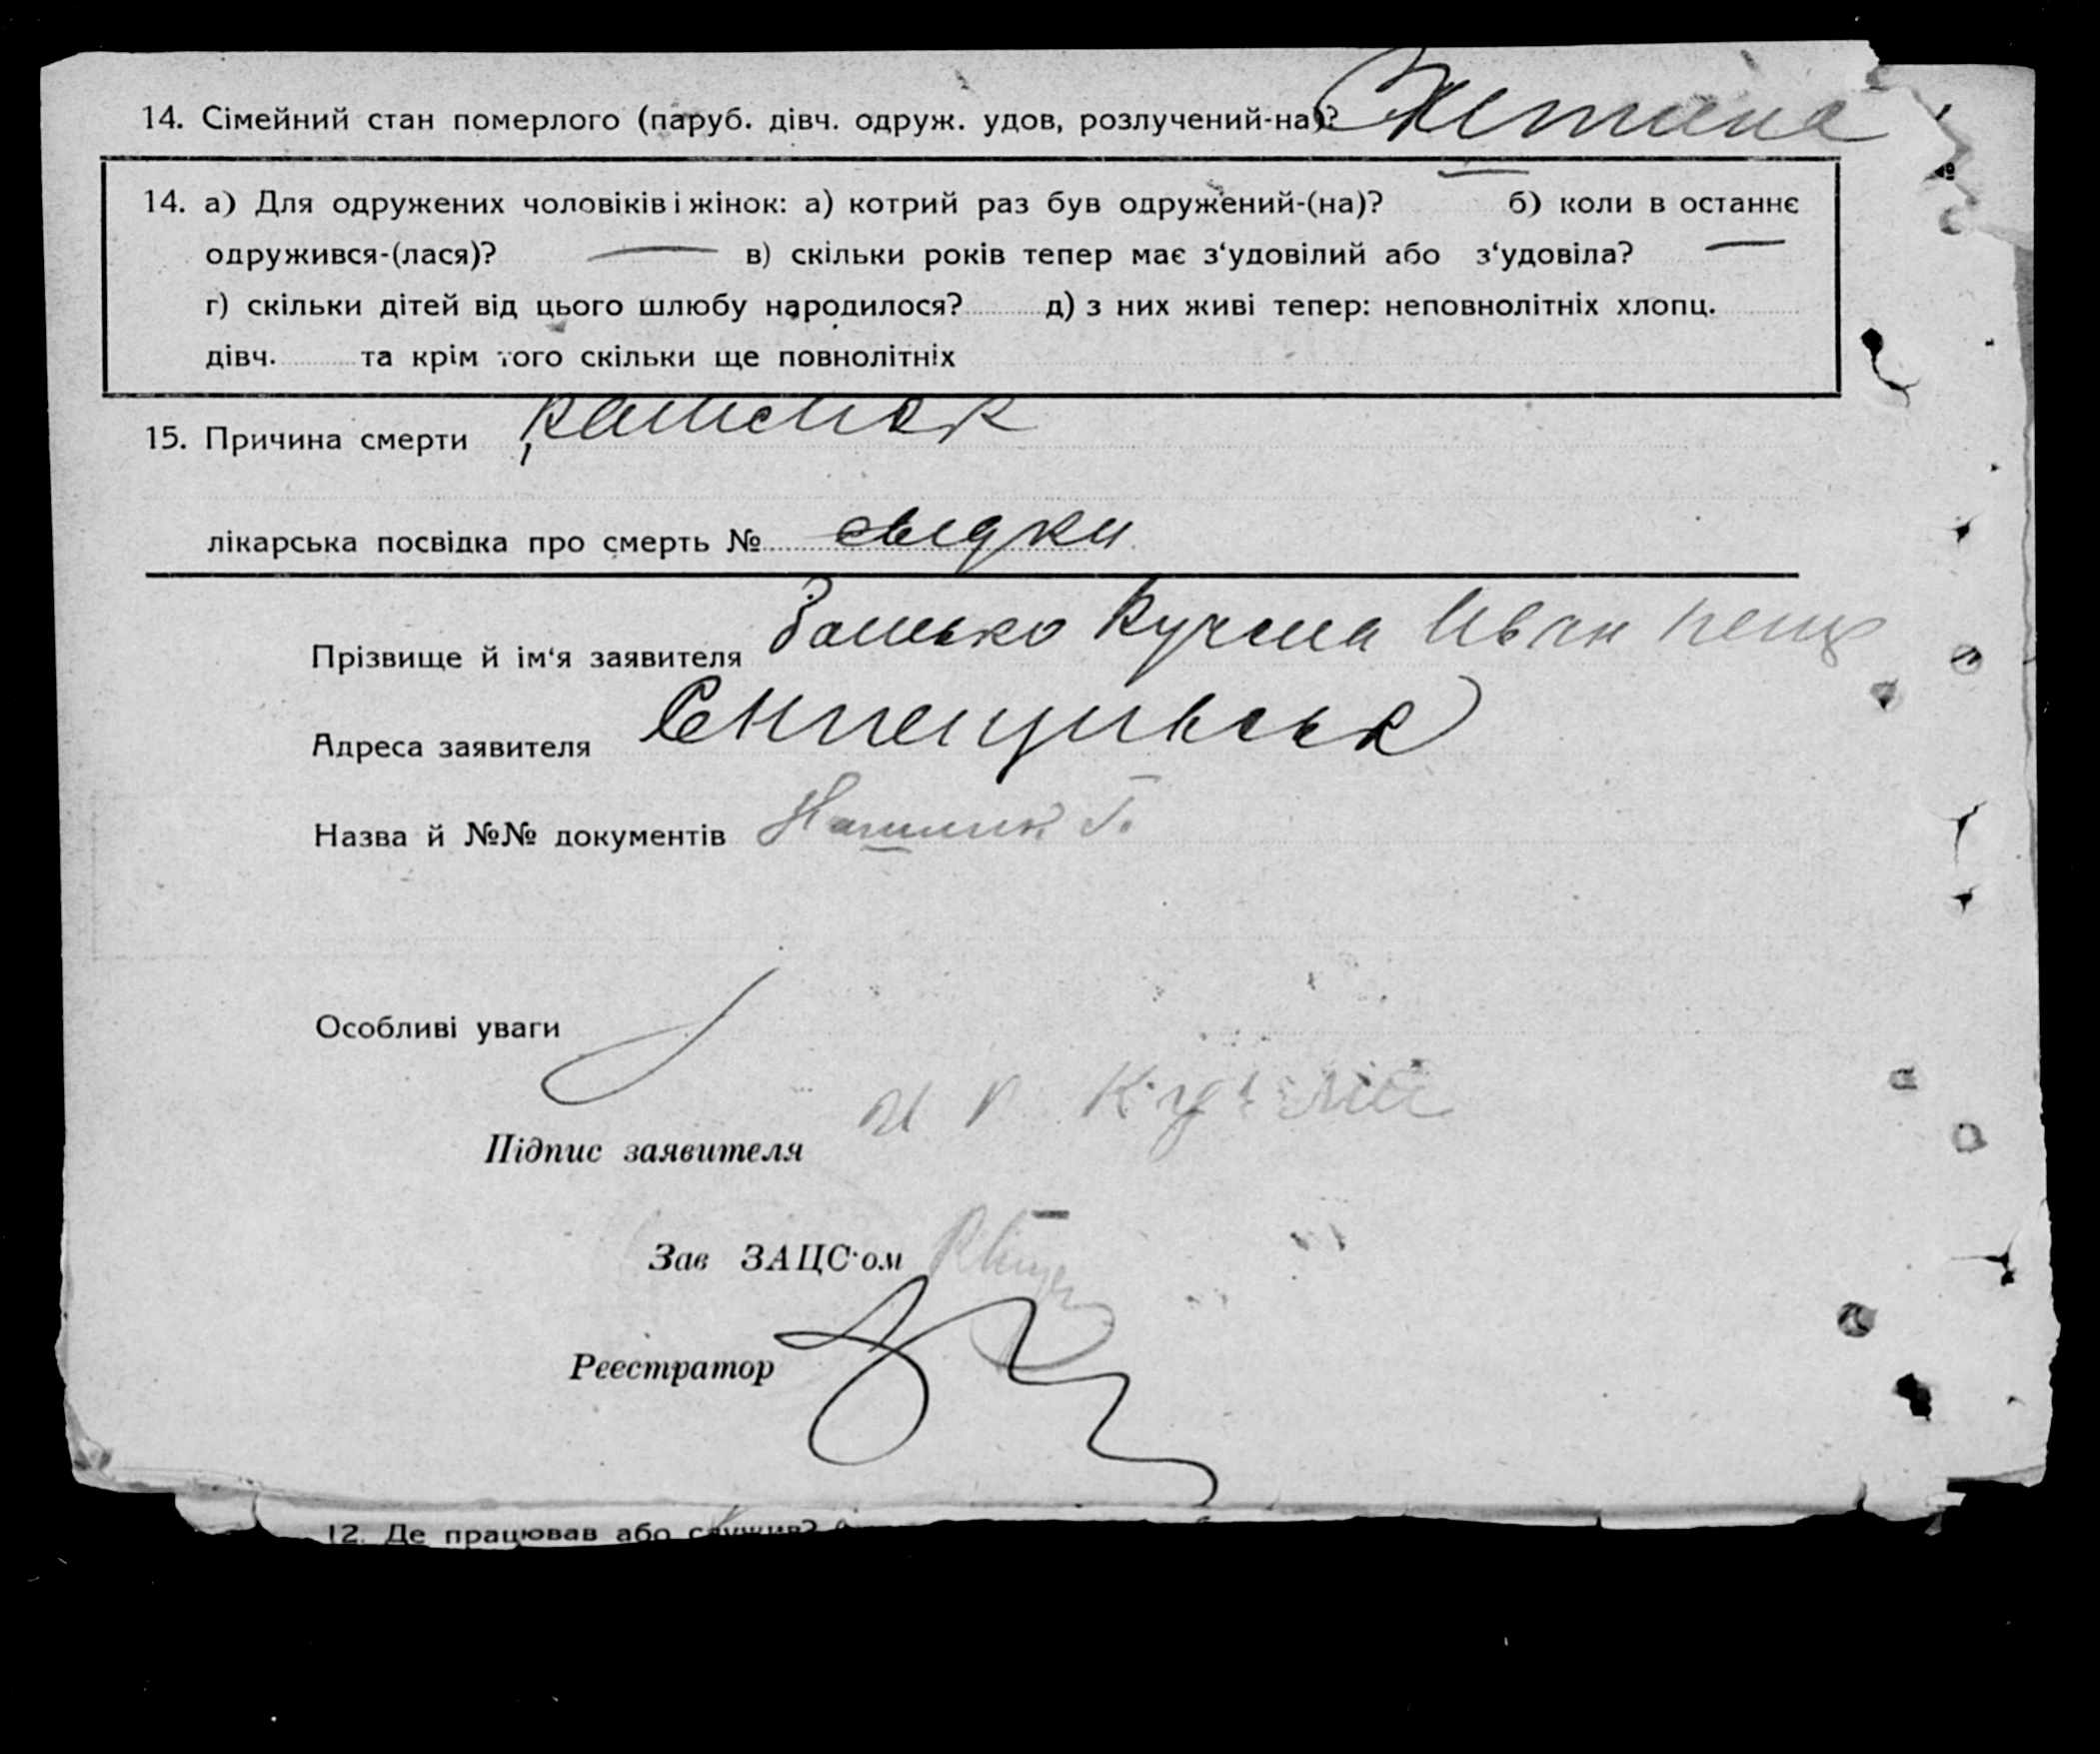 14. Сімейний стан померлого (паруб. дівч. одруж. удов, розлучений-на)?
14. а) Для одружених чоловіків і жінок: а) котрий раз був одружений-(на)? б) коли в останнє
одружився-(лася)? — в) скільки років тепер має з‘удовілий або з‘удовіла? —
г) скільки дітей від цього шлюбу народилося? д) з них живі тепер: неповнолітніх хлопц.
дівч. та крім того скільки ще повнолітніх
15. Причина смерти кашелек
лікарська посвідка про смерть № свідки
Прізвище й ім‘я заявителя Батько Кучма Иван
Адреса заявителя
Назва й №№ документів
Особливі уваги
Підпис заявителя И П Кучма
Зав ЗАЦС‘ом
Реєстратор
12. Де працював або служив?